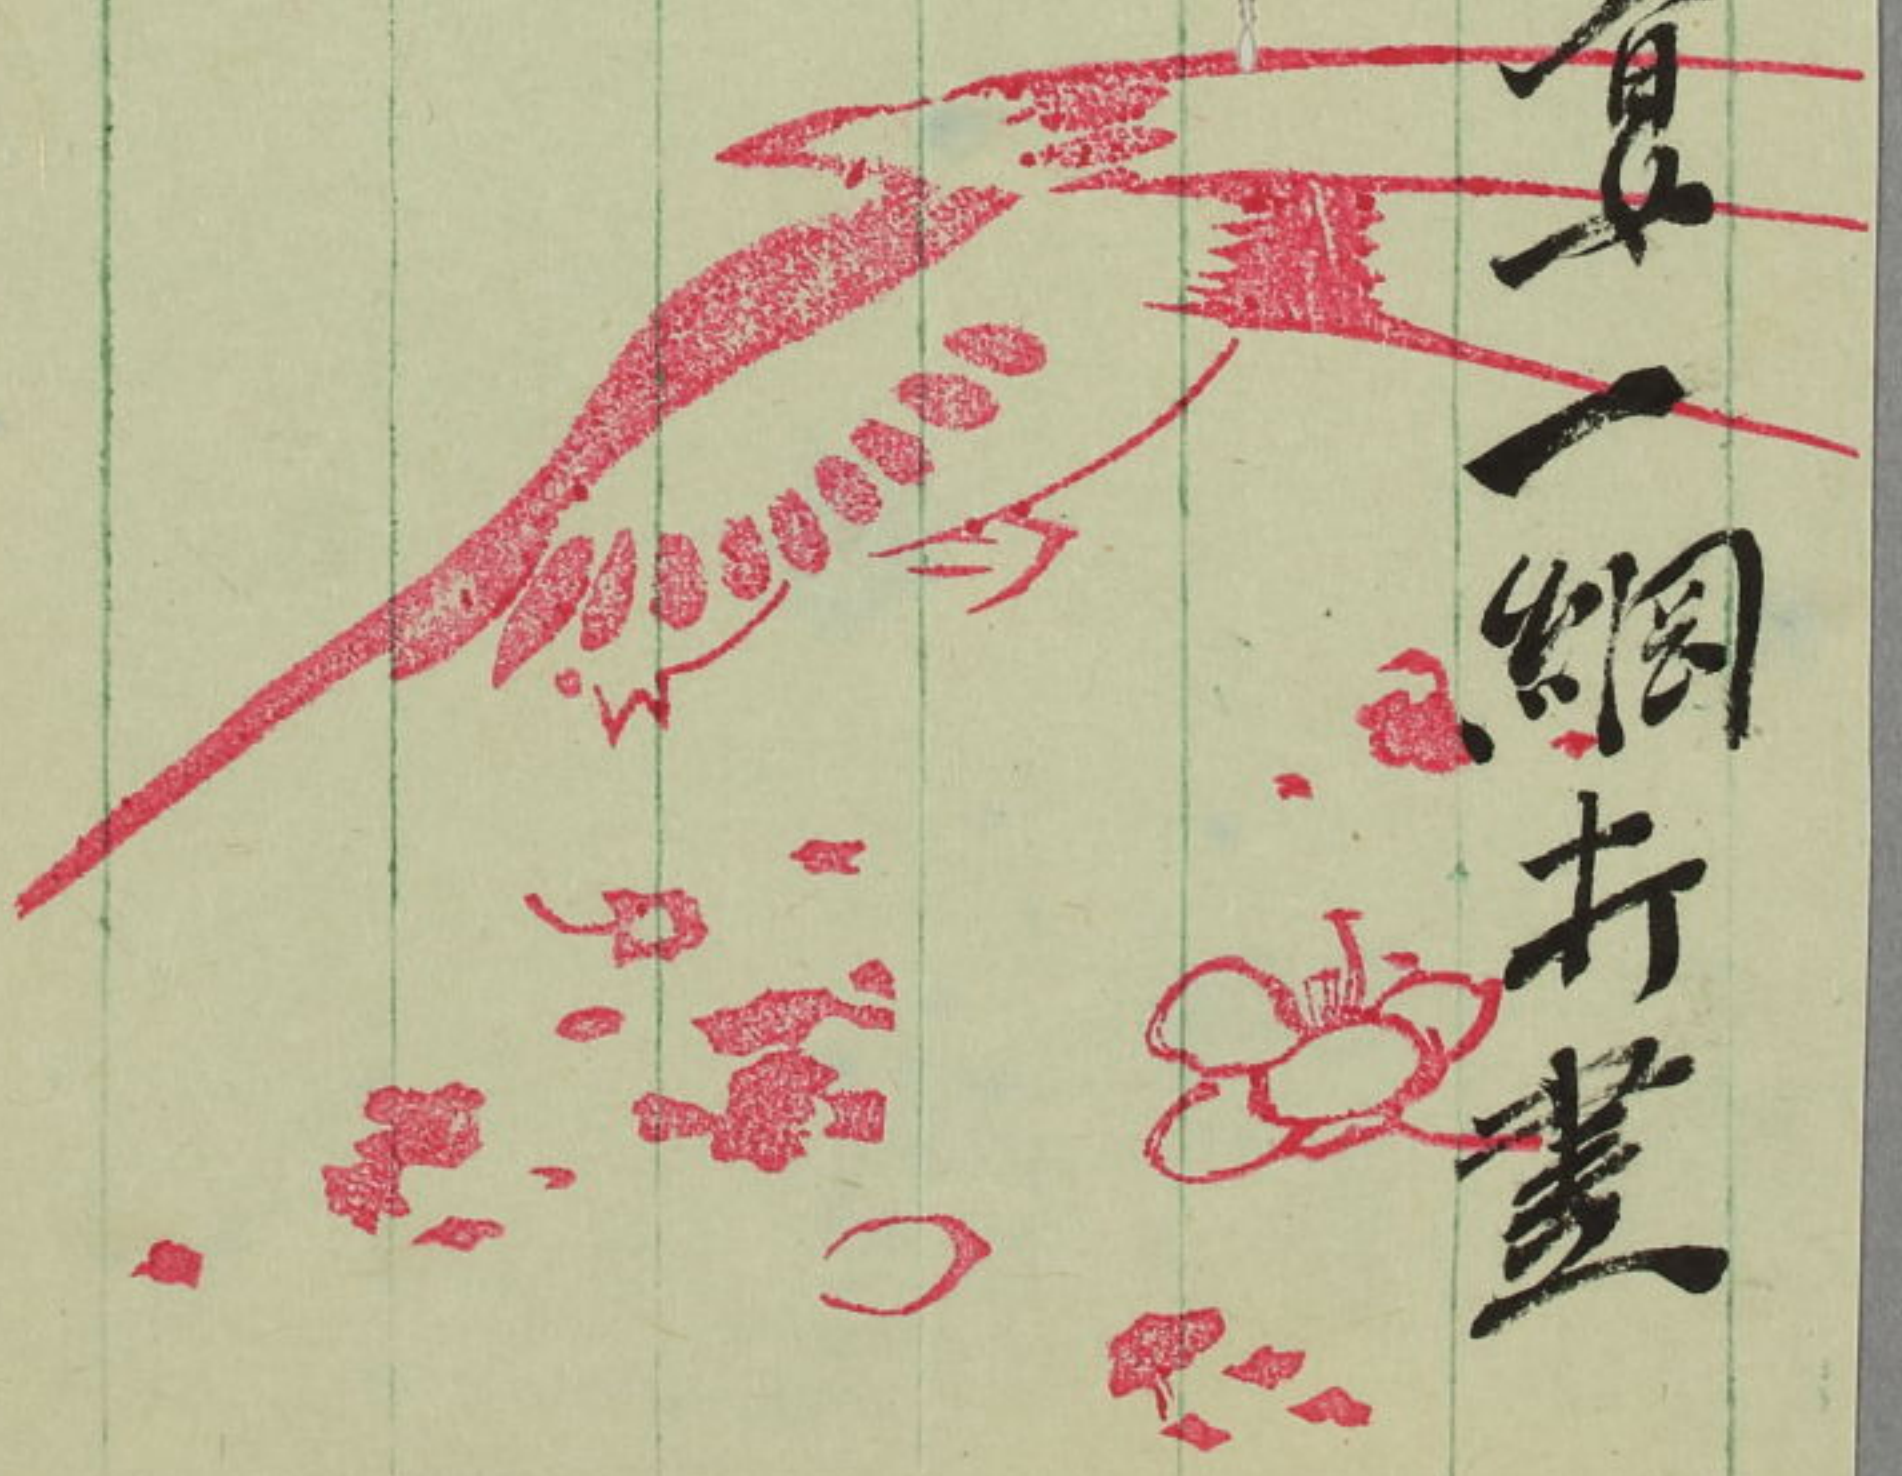 宴一網打盡